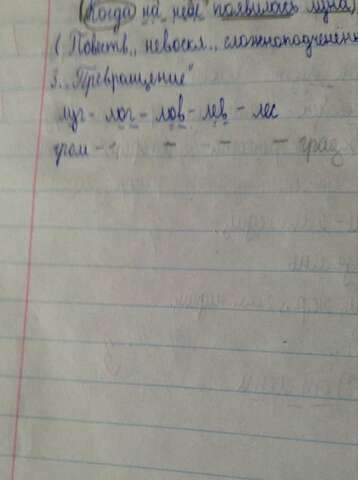 (Когда) на небе появилась луна)
(Повеств., невоскл., сложноподчинённ
3. "Превращение"
луг - лог - лов - лев - лес
гром - - - - град